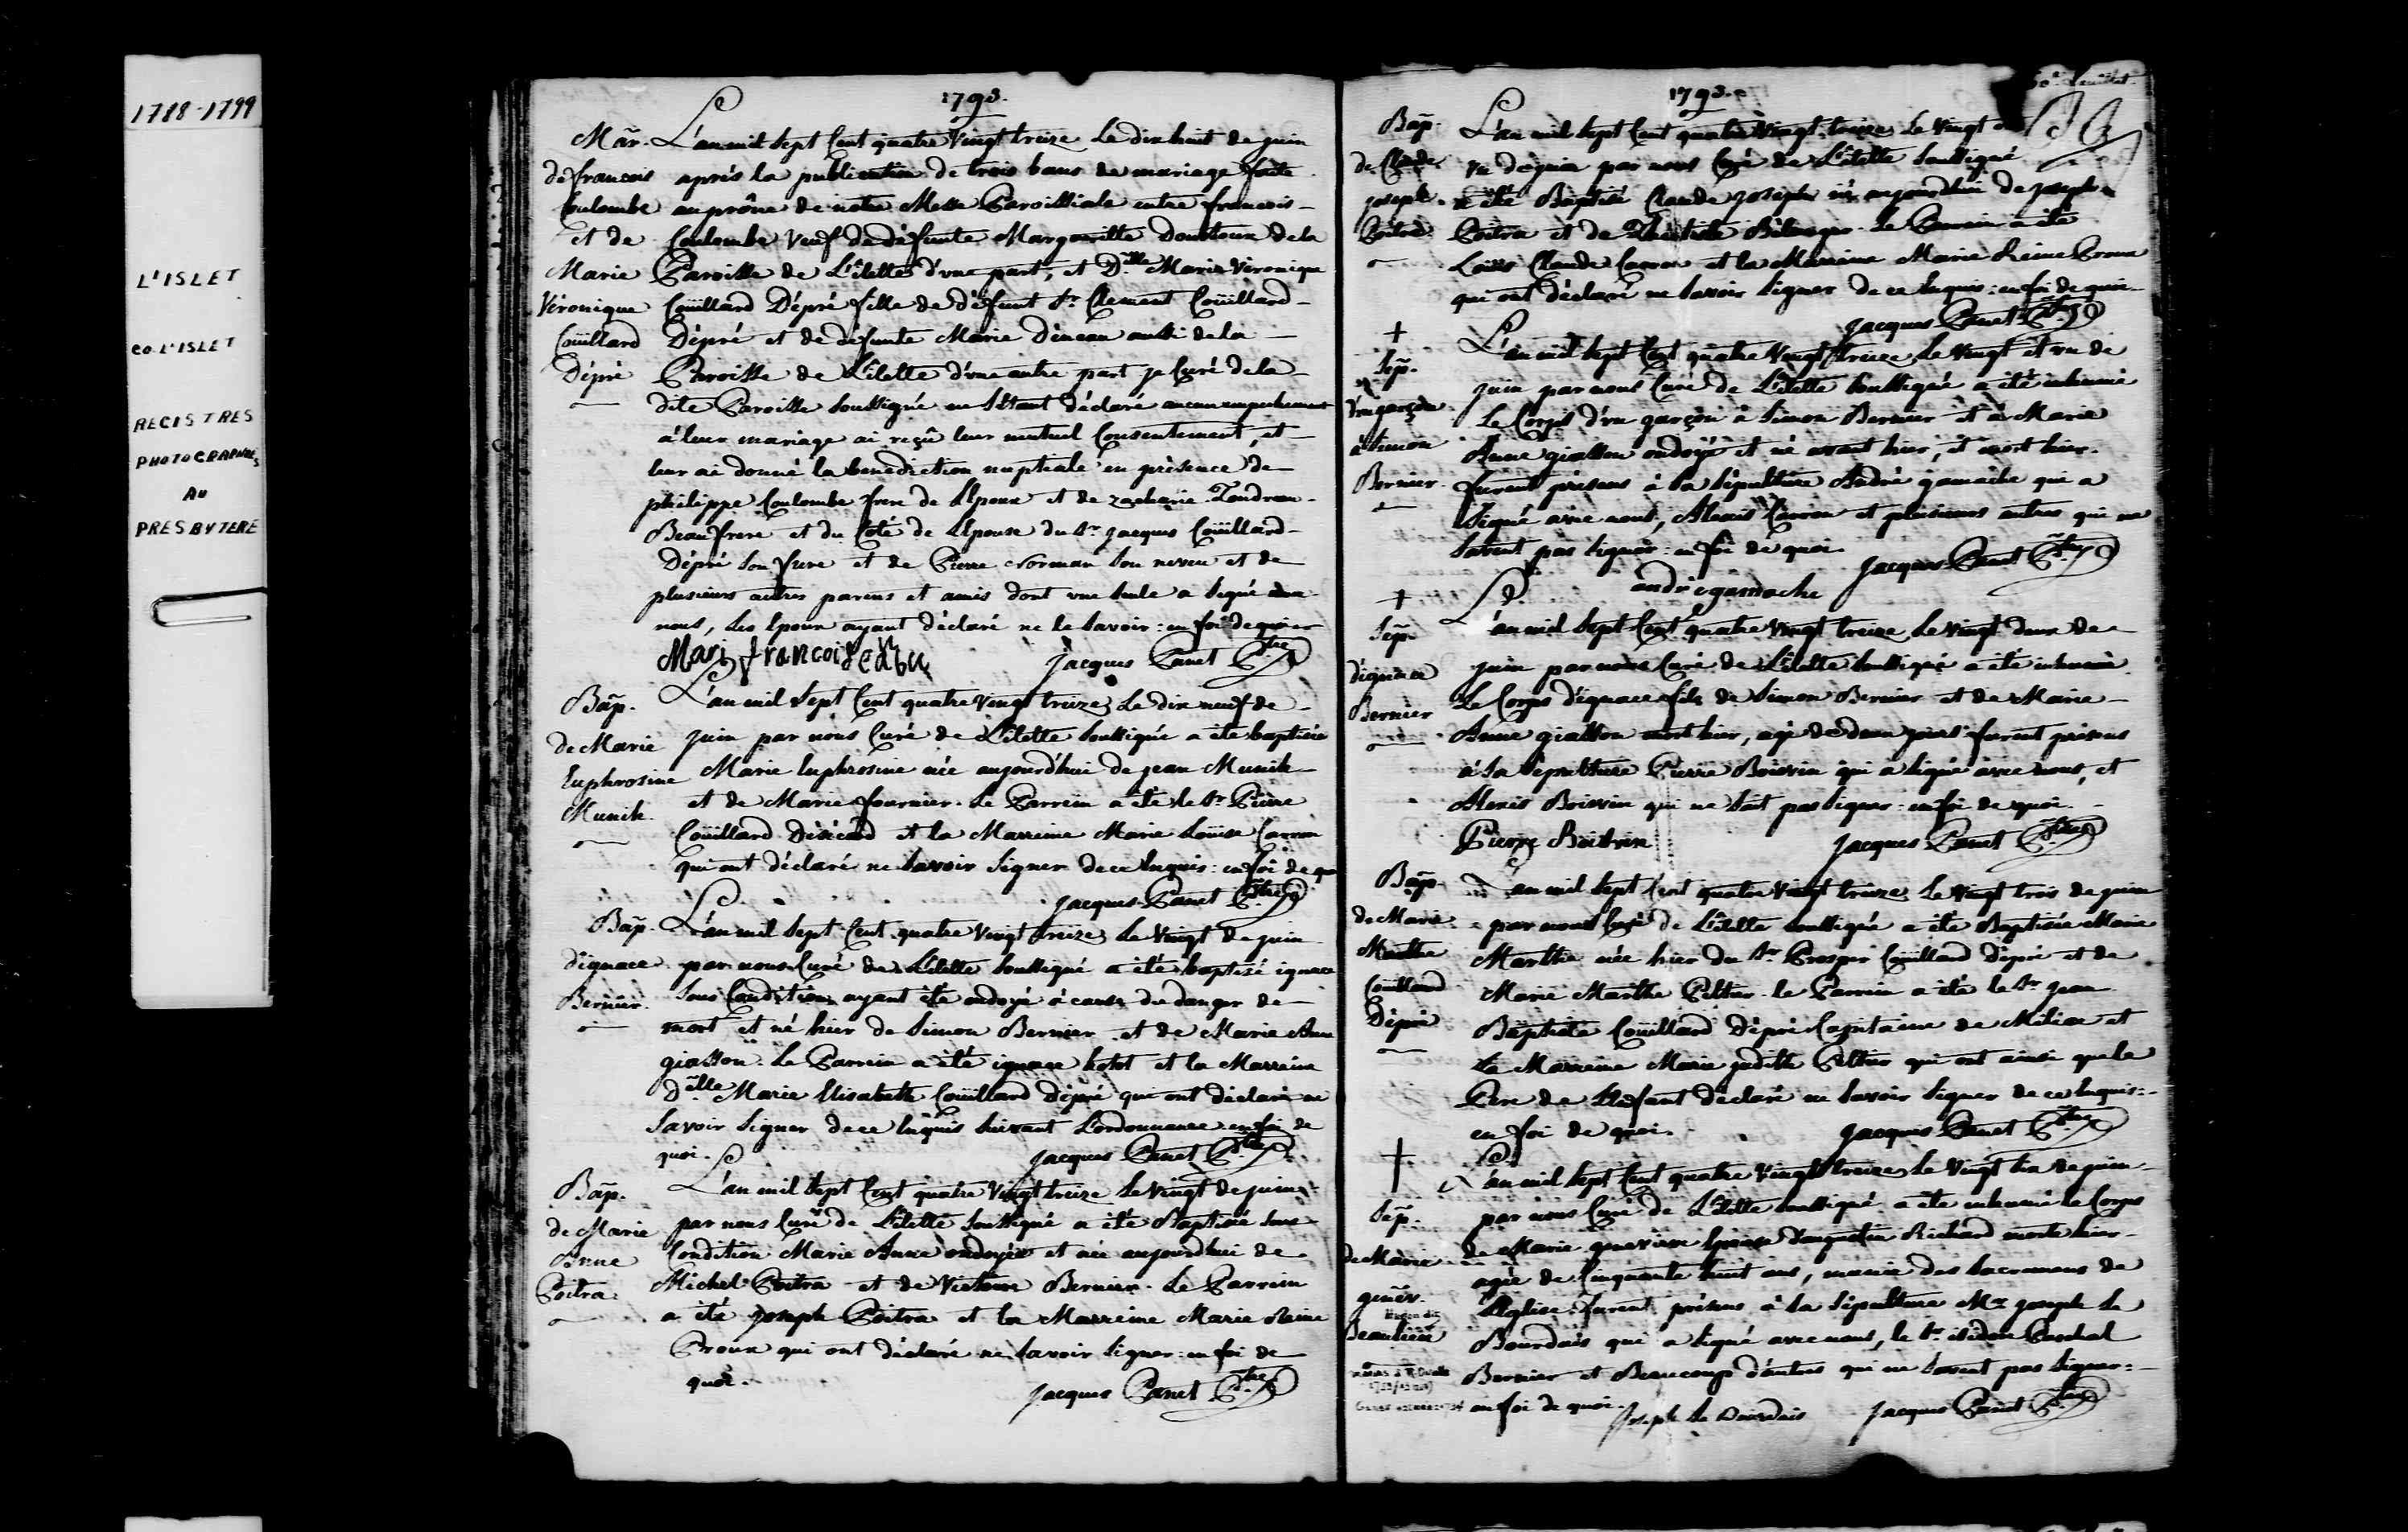 1788-1799
L'ISLET
CO. L'ISLET
REGISTRES
PHOTOGRAPHIÉS
AU
PRESBYTERE
1793.
Mar. L'an mil sept Cent quatre Vingt treize Le dix huit de juin
de francois après la publication de trois bans de mariage faite
Coulombe au prône de notre Messe Paroissiale entre francois
et de Coulombe Veuf de défunte Margueritte dela
Marie Paroisse de L'ilette d'une part, et D.lle Marie Véronique
Véronique Coüillard Dépré fille de défunt Sr. Clement Coüillard
Coüillard Dépré et de défunte Marie aussi de la
Dépré Paroisse de L'ilette d'une autre part je Curé dela
dite Paroisse soussigné ne S'étant déclaré aucun empechement
à leur mariage ai reçû leur mutuel Consentement, et
leur ai donné la benediction nuptiale en présence de
philippe Coulombe frere de L'Epoux et de zacharie
Beaufrere et du Coté de L'Epouse du Sr. jacques Coüillard
Dépré Son frere et de Pierre Norman Son neveu et de
plusieurs autres parens et amis dont une seule a signé avec
nous, Les Epoux ayant déclaré ne le Savoir: en foi de quoi
Mari francoise jacques Panet Ptre
Bap. L'an mil Sept Cent quatre vingt treize Le dix neuf de
de Marie juin par nous Curé de L'ilette soussigné a été baptisée
Euphrosine Marie Euphrosine née aujourd'hui de jean Munik
Munik. et de Marie fournier. Le Parrein a été le Sr. Pierre
Coüillard et la Marreine Marie Loüise Caron
qui ont déclaré ne Savoir Signer de ce Enquis: en foi de quoi
jacques Panet Ptre
Bap. L'an mil Sept Cent quatre vingt treize Le Vingt de juin
d'ignace par nous Curé de L'ilette soussigné a été baptisé ignace
Bernier. Sous Condition ayant été ondoyé à cause du danger de
mort et né hier de Simon Bernier et de Marie Anne
giasson. Le Parrein a été ignace hotot et la Marreine
D.lle Marie Elisabeth Coüillard dépré qui ont déclaré ne
Savoir Signer de ce Enquis Suivant L'ordonnance en foi de
quoi. jacques Panet Ptre
Bap. L'an mil Sept Cent quatre Vingt treize Le vingt de juin
de Marie par nous Curé de L'ilette Soussigné a été Baptisée Sous
Anne Condition Marie Anne ondoyée et née aujourdhui de
Poitra. Michel Poitra et de Victoire Bernier. Le Parrein
a été joseph Poitra et la Marreine Marie Reine
Proux qui ont déclaré ne Savoir Signer: en foi de
quoi. jacques Panet Ptre
1793.
50e feuillet
Bap. L'an mil Sept Cent quatre Vingt treize Le Vingt et
de Claude un de juin par nous Curé de L'ilette Soussigné
joseph a été Baptisé Claude joseph né aujourdhui de joseph
Poitra Poitra et de Bélanger. Le Parrein a été
Loüis Claude Caron et la Marreine Marie Reine Proux
qui ont déclaré ne Savoir Signer de ce Enquis: en foi de quoi
jacques Panet Ptre
+ L'an mil Sept Cent quatre Vingt treize Le Vingt et un de
Sep. juin par nous Curé de L'ilette Soussigné a été inhumé
d'un garçon Le Corps d'un garçon à Simon Bernier et à Marie
à Simon Anne giasson ondoyé et né avant hier, et mort hier.
Bernier. furent présens à la Sépulture André gamache qui a
Signé avec nous, Alexis Caron et plusieurs autres qui ne
Savent pas Signer: en foi de quoi.
andré gamache jacques Panet Ptre
+ L'an mil Sept Cent quatre Vingt treize Le Vingt deux de
Sep. juin par nous Curé de L'ilette Soussigné a été inhumé
d'ignace Le Corps d'ignace fils de Simon Bernier et de Marie
Bernier Anne giasson mort hier, agé de deux jours furent présens
à Sa Sépulture Pierre Boissin qui a Signé avec nous, et
Alexis Boissin qui ne Sait pas Signer: en foi de quoi.
Pierre jacques Panet Ptre
Bap. L'an mil Sept Cent quatre vingt treize Le Vingt trois de juin
de Marie par nous Curé de L'ilette Soussigné a été Baptisée Marie
Marthe Marthe née hier du Sr. Prosper Coüillard dépré et de
Coüillard Marie Marthe Peltier. le Parrein a été le Sr. jean
Dépré Baptiste Coüillard Dépré Capitaine de Milice et
La Marreine Marie judith Peltier qui ont ainsi que le
Pere de L'Enfant déclaré ne Savoir Signer de ce Enquis:
en foi de quoi. jacques Panet Ptre
+ L'an mil Sept Cent quatre Vingt treize Le Vingt six de juin
Sep. par nous Curé de L'ilette Soussigné a été inhumé Le Corps
de Marie de Marie genevieve Epouse d'augustin Richard morte hier
genev. agée de Cinquante huit ans, munie des Sacremens de
Beaulieu L'Eglise. furent présens à la Sépulture Mr. joseph Le
Bourdais qui a Signé avec nous, le Sr. isidore Paschal
Bernier et Beaucoup d'autres qui ne Savent pas Signer:
en foi de quoi. Joseph Le Bourdais jacques Panet Ptre